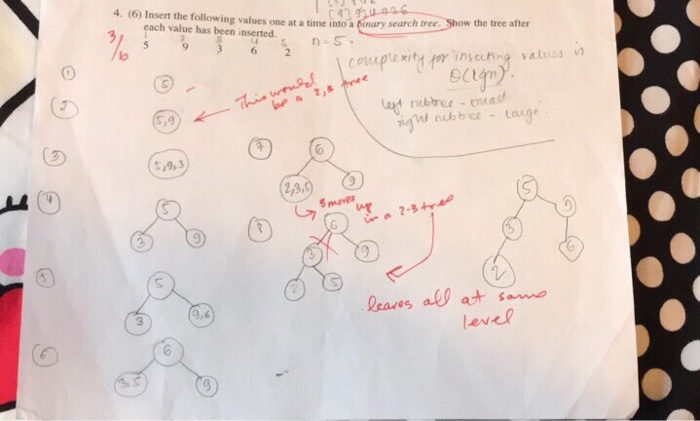 4. (6) Insert the following values one at a time into a binary search tree. Show the tree after
each value has been inserted.
5 9 3 6 2
n = 5.
3/6
complexity for inserting values is
Θ(lgn).
left subtree - small
right subtree - large.
1
5
This would
be a 2,3 tree
2
5,9
3
5,9,3
4
5
3 9
5
5
3 9,6
6
6
3,5 9
7
6
2,3,5 9
3 moves up
in a 2-3 tree
8
6
3 9
2 5
5
3 9
2 6
leaves all at same
level